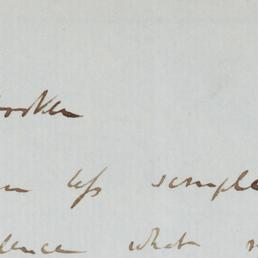 ooker
less scruple
dence what